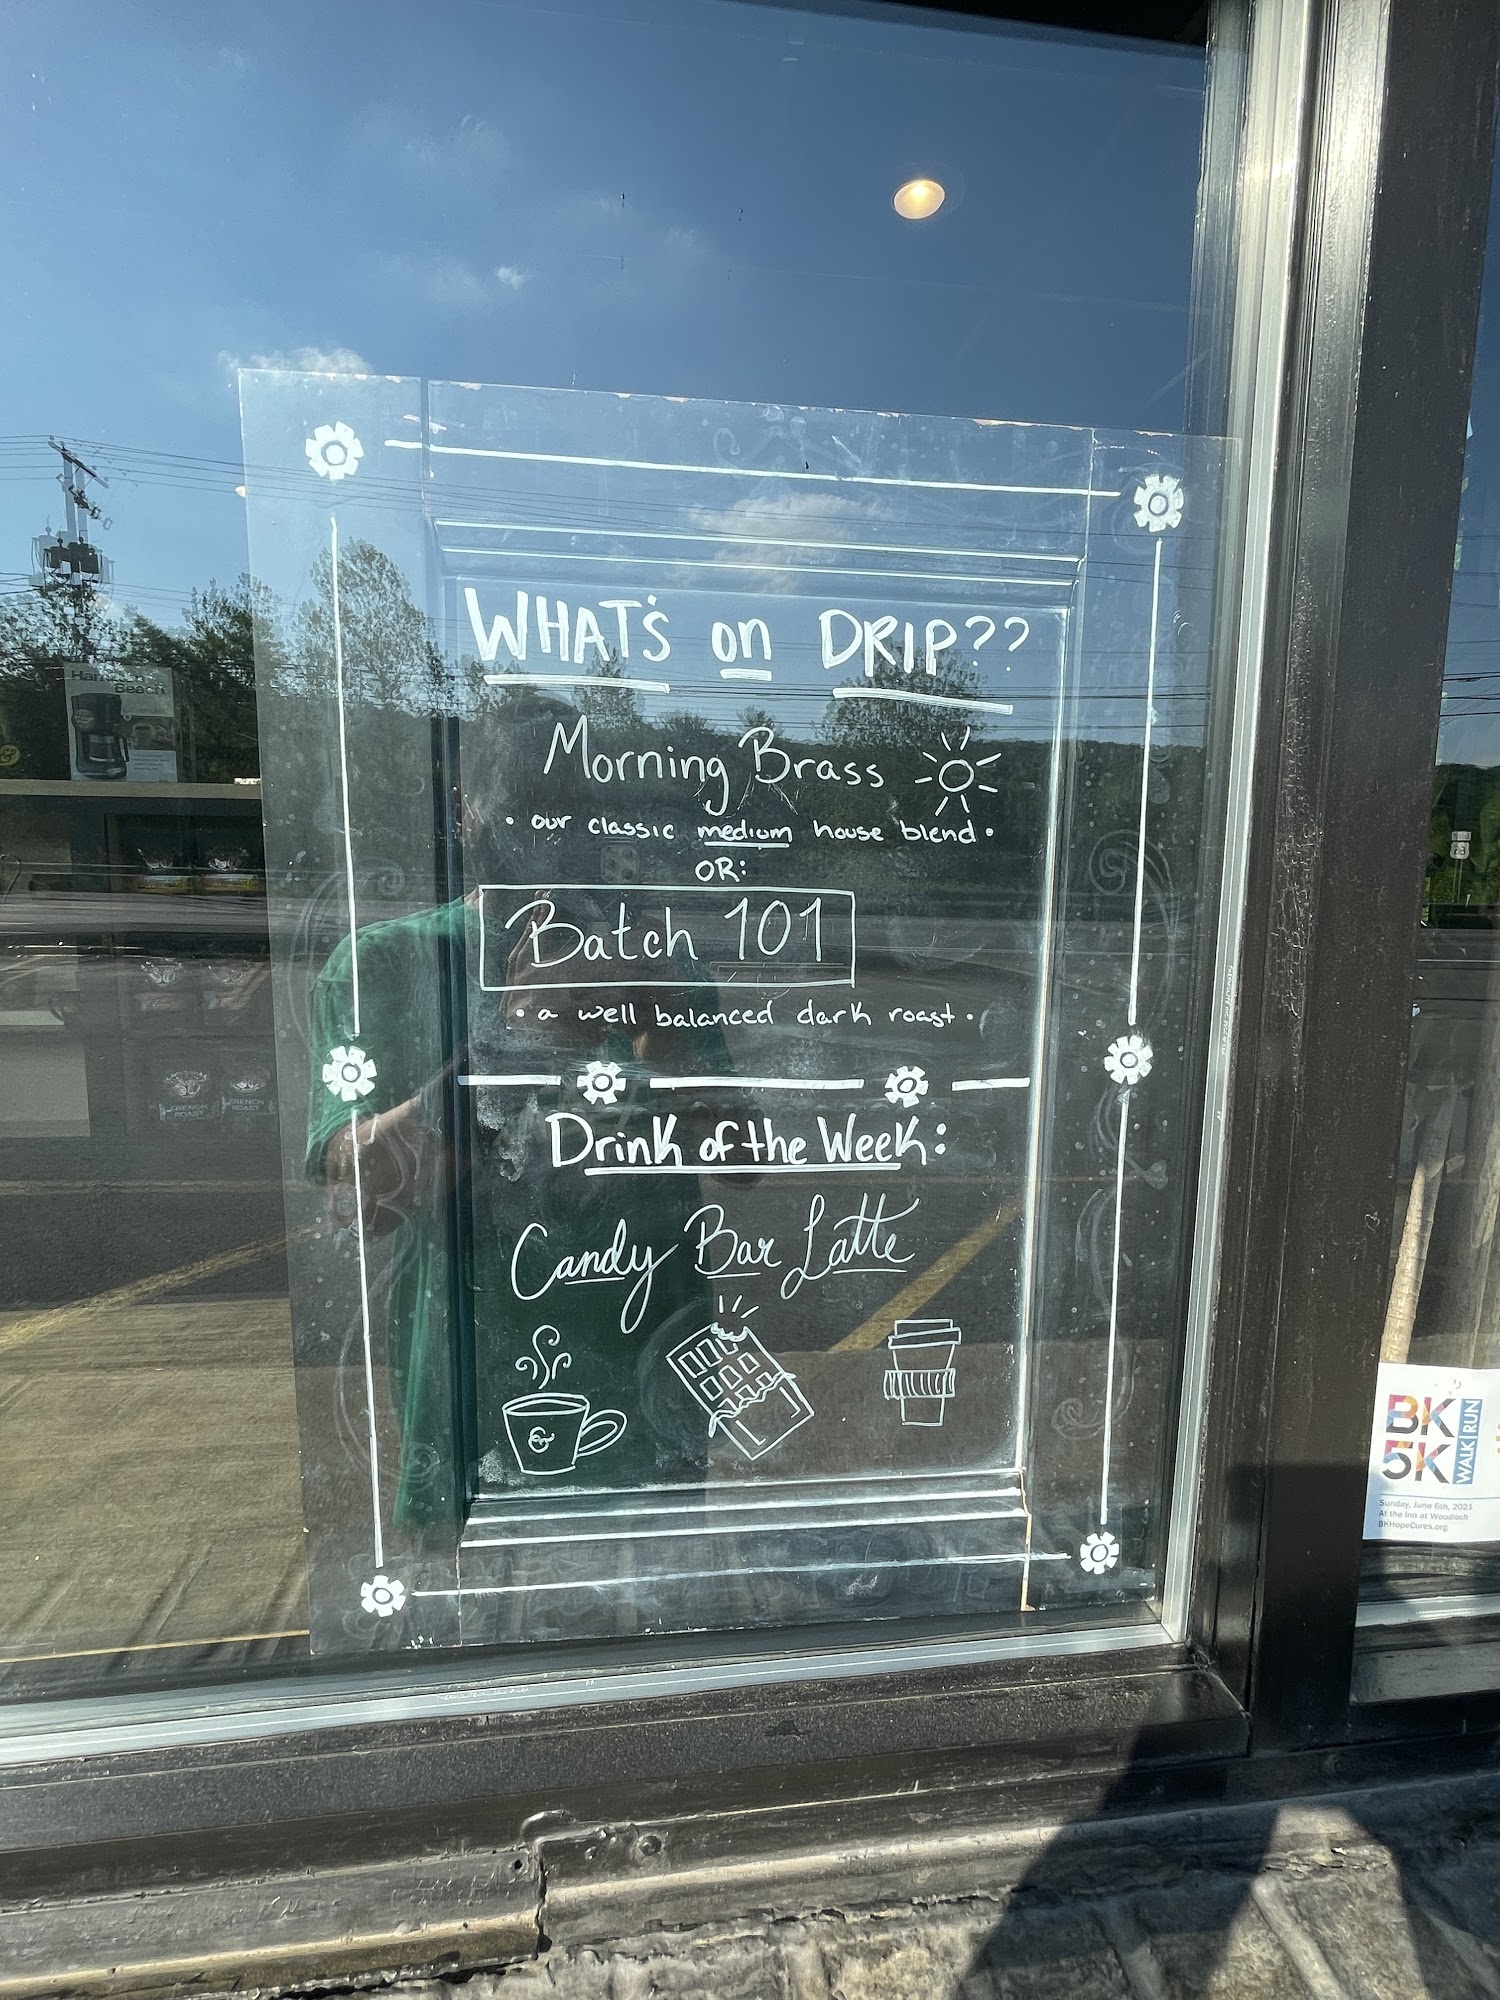 WHAT'S on DRIP??
Morning Brass
• our classic medium house blend •
OR:
Batch 101
• a well balanced dark roast •
Drink of the Week:
Candy Bar Latte
&
Hamilton
Beach
FRENCH
ROAST
FRENCH
ROAST
BK
5K
WALK | RUN
Sunday, June 6th, 2021
At the Inn at Woodloch
BKHopeCures.org